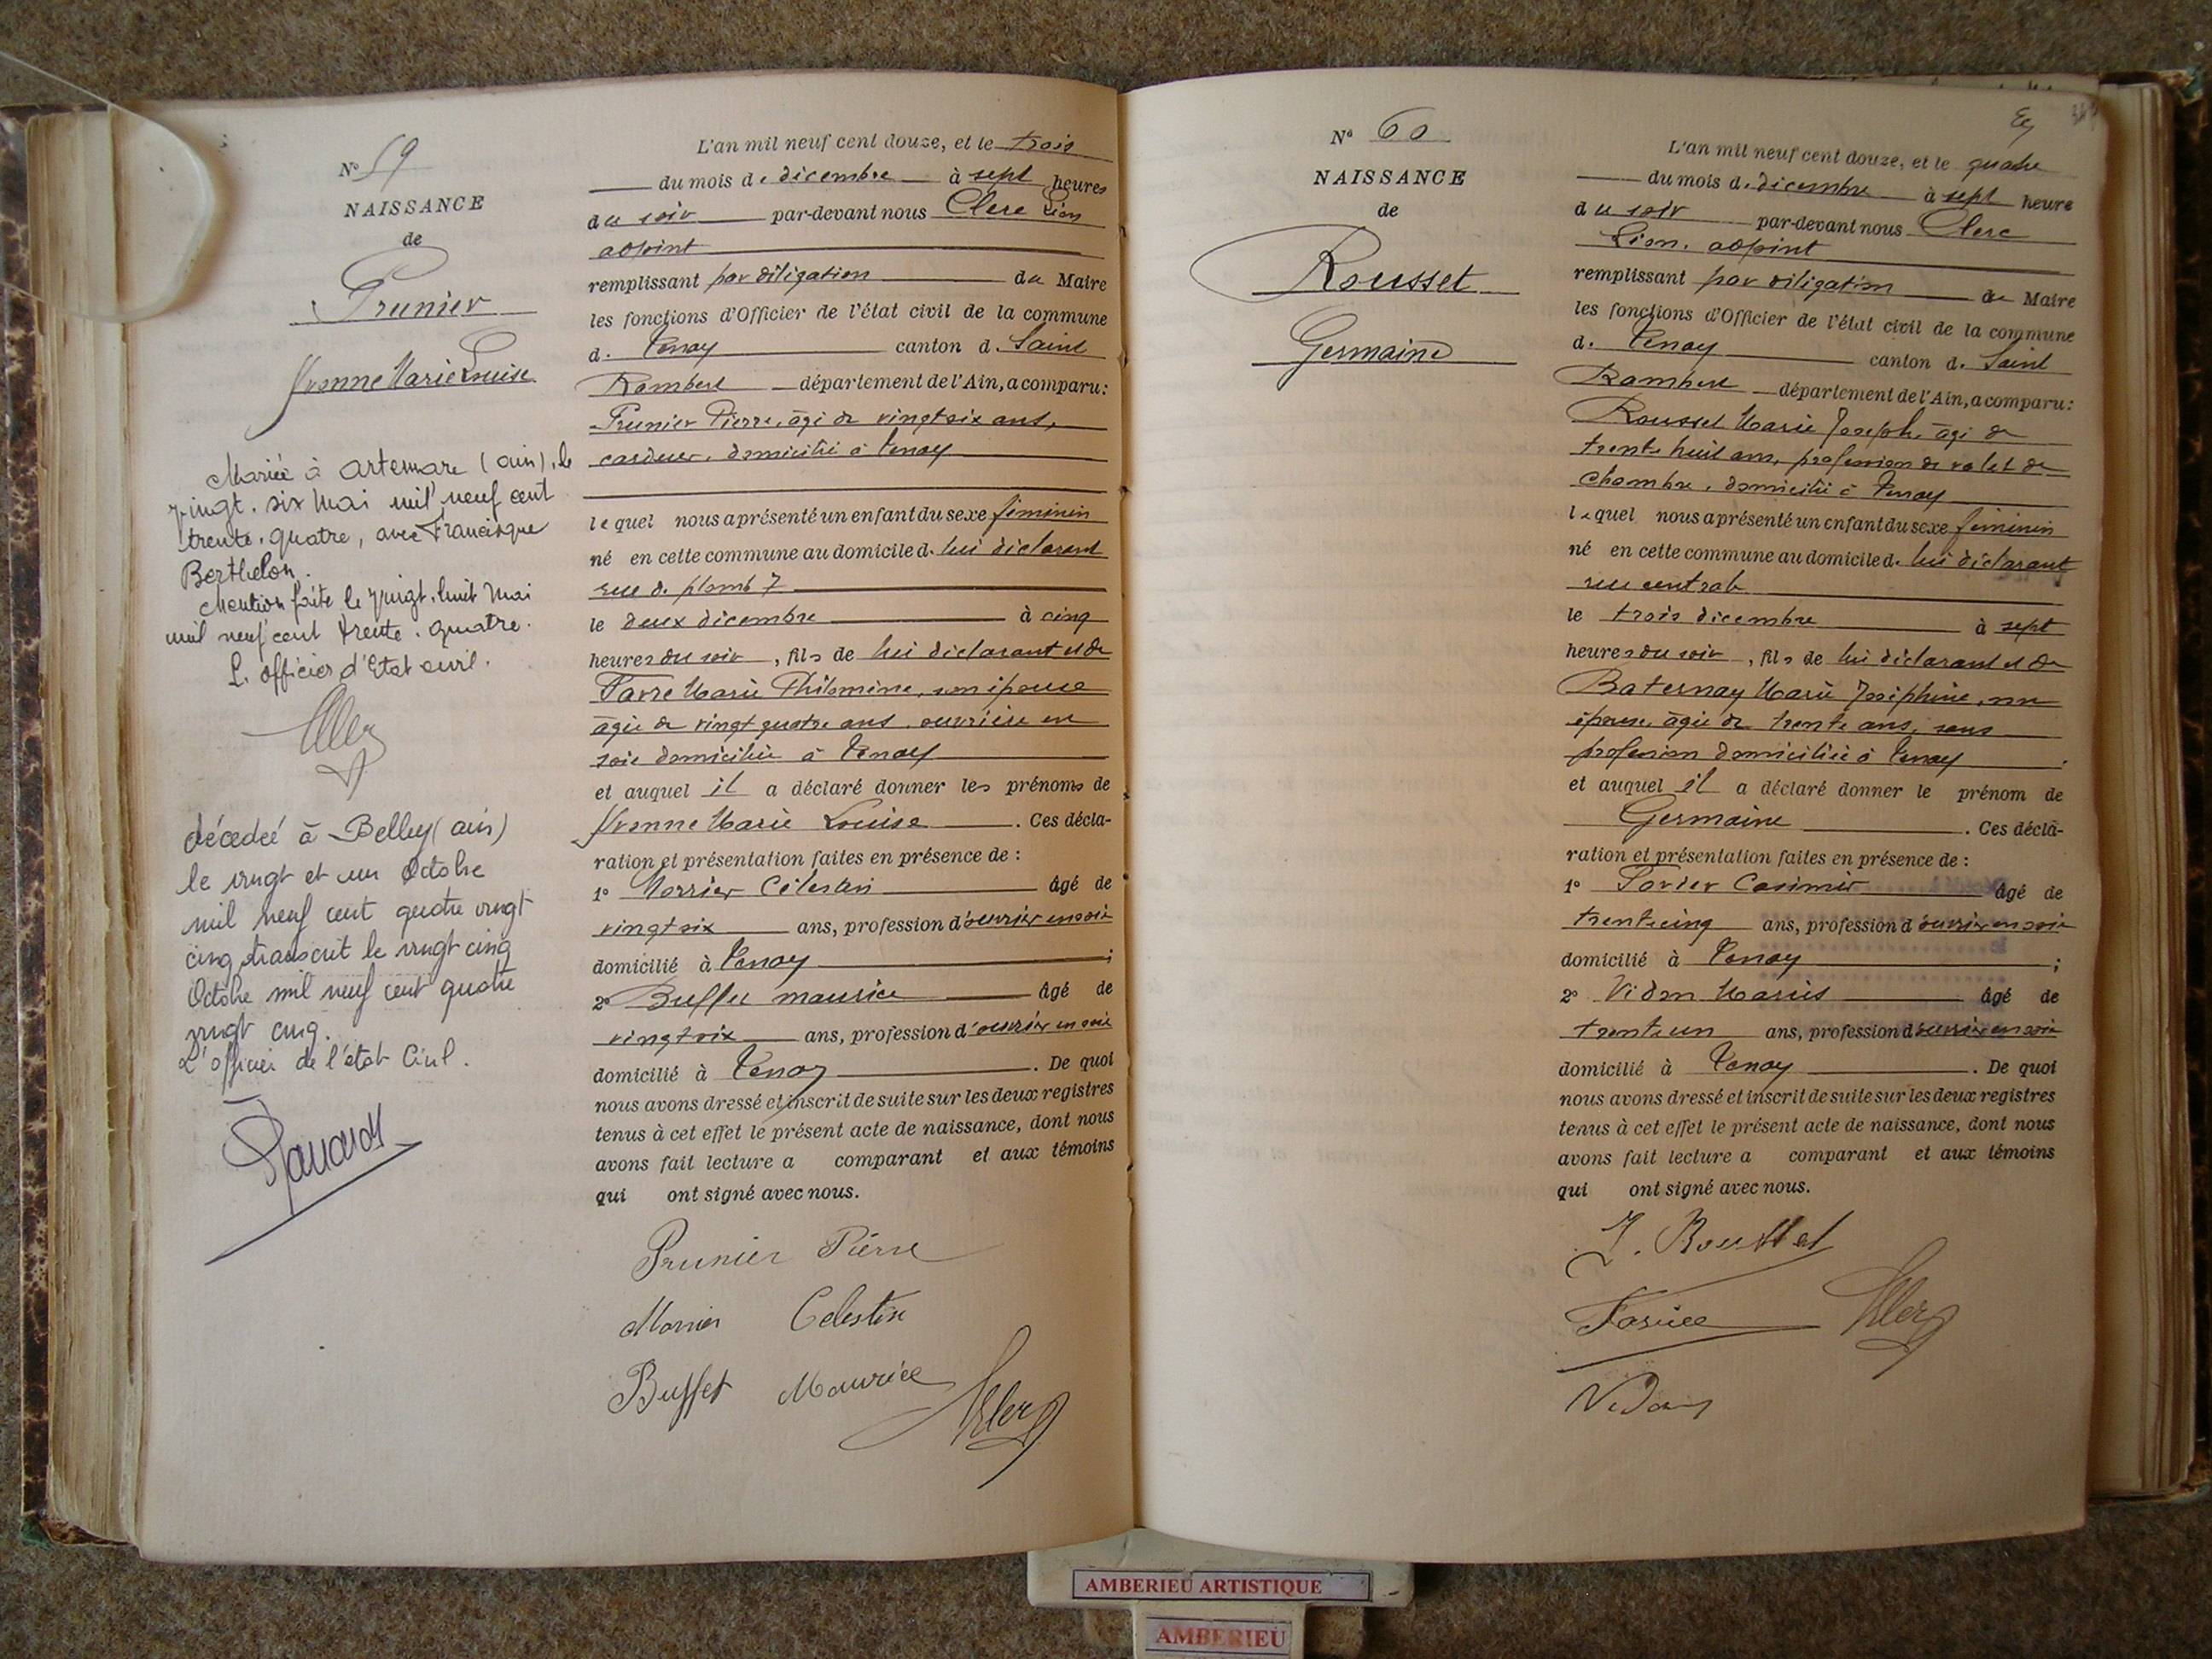 N° 59
NAISSANCE
de
Prunier
Yvonne Marie Louise
Mariée à Artemare (ain), le
vingt. six Mai mil neuf cent
trente. quatre, avec Francisque
Berthelon.
Mention faite le vingt. huit Mai
mil neuf cent trente. quatre.
L. officier d'Etat civil.
Clerc
décédée à Belley (ain)
le vingt et un Octobre
mil neuf cent quatre vingt
cinq transcrit le vingt cinq
Octobre mil neuf cent quatre
vingt cinq.
L'officier de l'état Civil.
L'an mil neuf cent douze, et le trois
du mois de décembre à sept heures
du soir par-devant nous Clerc Léon
adjoint
remplissant par délégation du Maire
les fonctions d'Officier de l'état civil de la commune
d. Tenay canton d. Saint
Rambert département de l'Ain, a comparu:
Prunier Pierre, âgé de vingt six ans,
cardeur, domicilié à Tenay
lequel nous a présenté un enfant du sexe féminin
né en cette commune au domicile d. lui déclarant
rue du plomb 7
le deux décembre à cinq
heures du soir, fils de lui déclarant et de
Favre Marie Philomène, son épouse
âgée de vingt quatre ans, ouvrière en
soie domiciliée à Tenay
et auquel il a déclaré donner les prénoms de
Yvonne Marie Louise. Ces décla-
ration et présentation faites en présence de :
1° Morrier Célestin âgé de
vingt six ans, profession d'ouvrier en soie
domicilié à Tenay ;
2° Buffet maurice âgé de
vingt six ans, profession d'ouvrier en soie
domicilié à Tenay. De quoi
nous avons dressé et inscrit de suite sur les deux registres
tenus à cet effet le présent acte de naissance, dont nous
avons fait lecture a comparant et aux témoins
qui ont signé avec nous.
Prunier Pierre
Morrier Celestin
Buffet Maurice Clerc
N° 60
NAISSANCE
de
Rousset
Germaine
L'an mil neuf cent douze, et le quatre
du mois de décembre à sept heure
du soir par-devant nous Clerc
Léon. adjoint
remplissant par délégation du Maire
les fonctions d'Officier de l'état civil de la commune
d. Tenay canton d. Saint
Rambert département de l'Ain, a comparu:
Rousset Marie Joseph, âgé de
trente huit ans, profession de valet de
chambre, domicilié à Tenay
lequel nous a présenté un enfant du sexe féminin
né en cette commune au domicile d. lui déclarant
rue centrale
le trois décembre à sept
heures du soir, fils de lui déclarant et de
Baternay Marie Joséphine, son
épouse, âgée de trente ans, sans
profession domiciliée à Tenay.
et auquel il a déclaré donner le prénom de
Germaine. Ces décla-
ration et présentation faites en présence de :
1° Casimir âgé de
trente cinq ans, profession d'ouvrier en soie
domicilié à Tenay ;
2° Vidon Marius âgé de
trente un ans, profession d'ouvrier en soie
domicilié à Tenay. De quoi
nous avons dressé et inscrit de suite sur les deux registres
tenus à cet effet le présent acte de naissance, dont nous
avons fait lecture a comparant et aux témoins
qui ont signé avec nous.
J. Rousset
Clerc
Vidon
AMBERIEU ARTISTIQUE
AMBERIEU